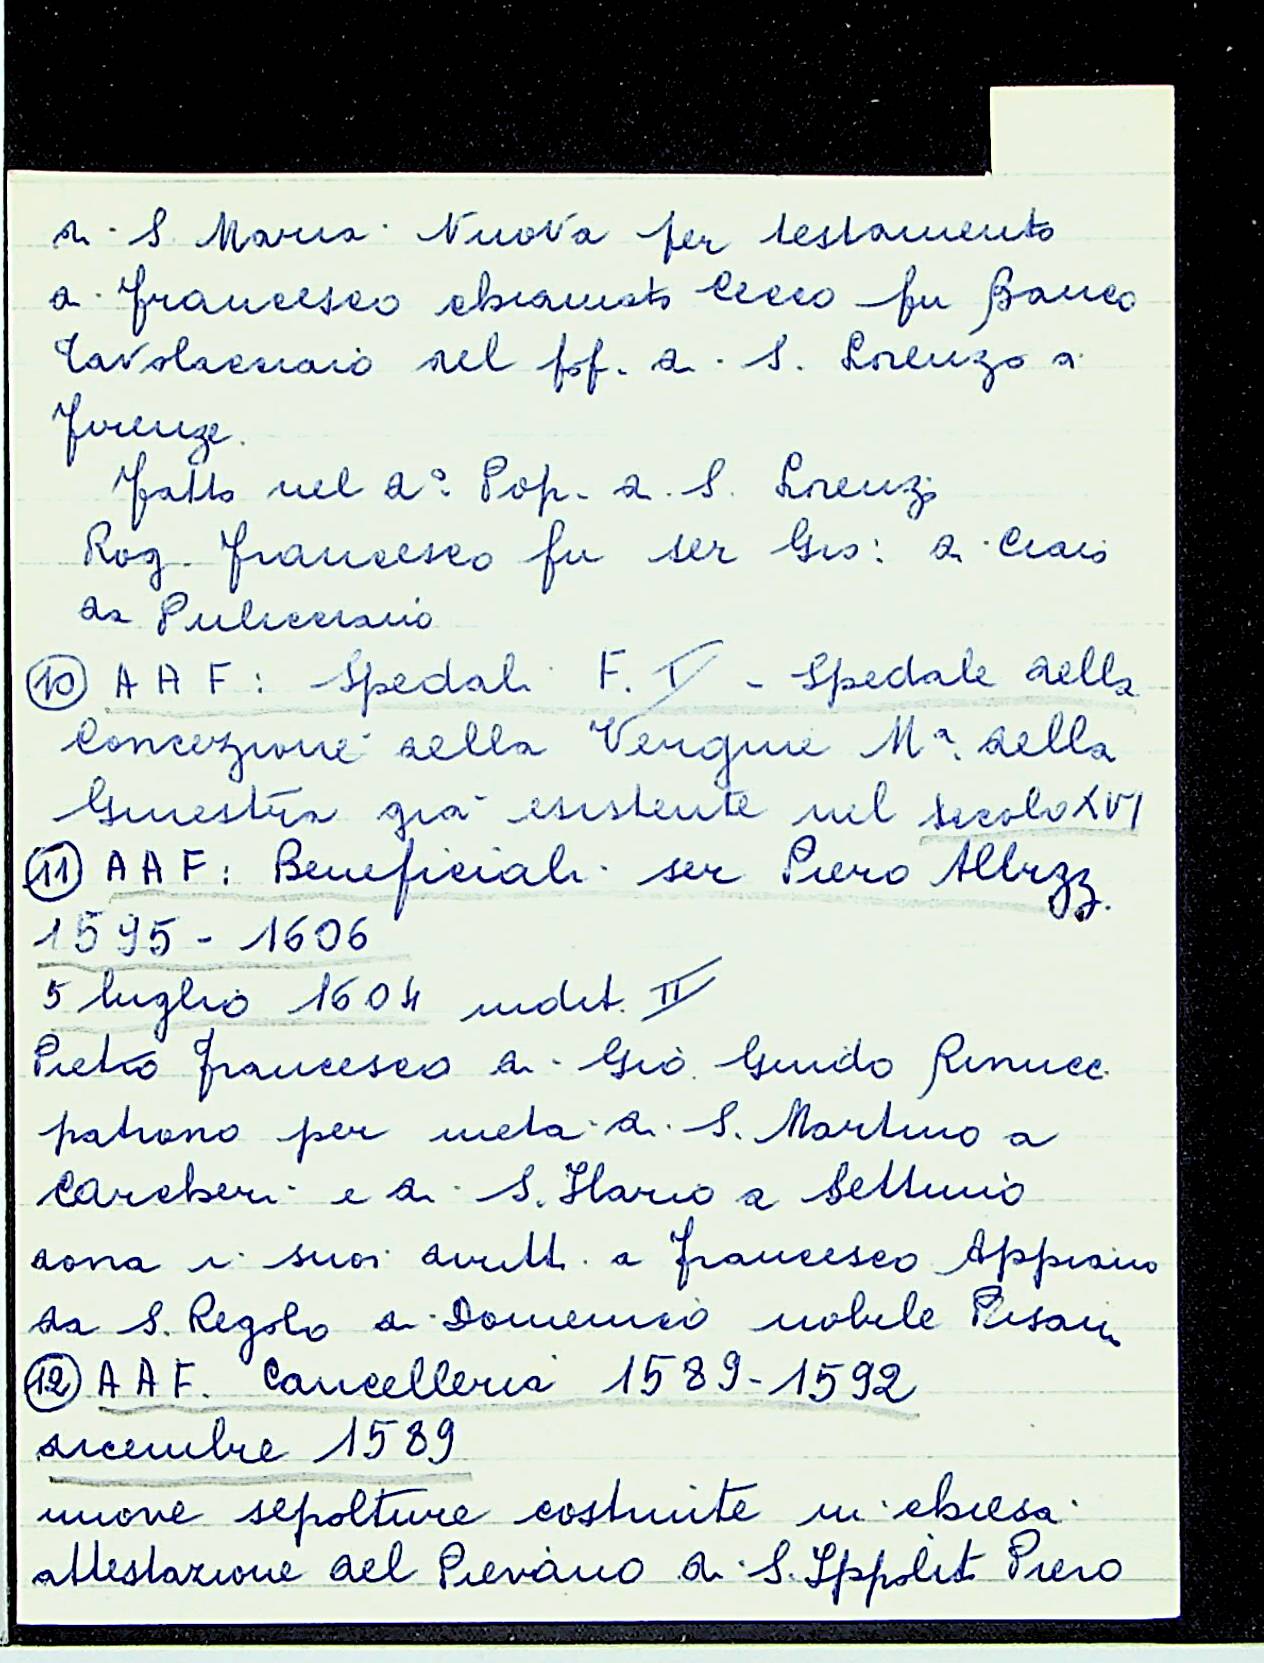 di S. Maria Nuova per testamento
di Francesco chiamato Cecco fu Banco
Tavolacciaio del pop. di S. Lorenzo di
Firenze.
Fatto nel dº. Pop. di S. Lorenzo
Rog. Francesco fu ser Gio: di Ciaio
da Pulicciano
⑩ A A F: Spedali F. V - Spedale della
Concezione della Vergine Mª. della
Ginestra già esistente nel secolo XVI
⑪ A A F: Beneficiali ser Piero Albizz.
1595 - 1606
5 luglio 1604 indit. II
Pietro Francesco di Giò. Guido Rinucc.
patrono per metà di S. Martino a
Carcheri e di S. Ilario a Settimo
dona i suoi diritti a Francesco Appiano
da S. Regolo di Domenico nobile Pisano
⑫ A A F. Cancelleria 1589-1592
dicembre 1589
nuove sepolture costruite in chiesa
attestazione del Pievano di S. Ippolito Piero